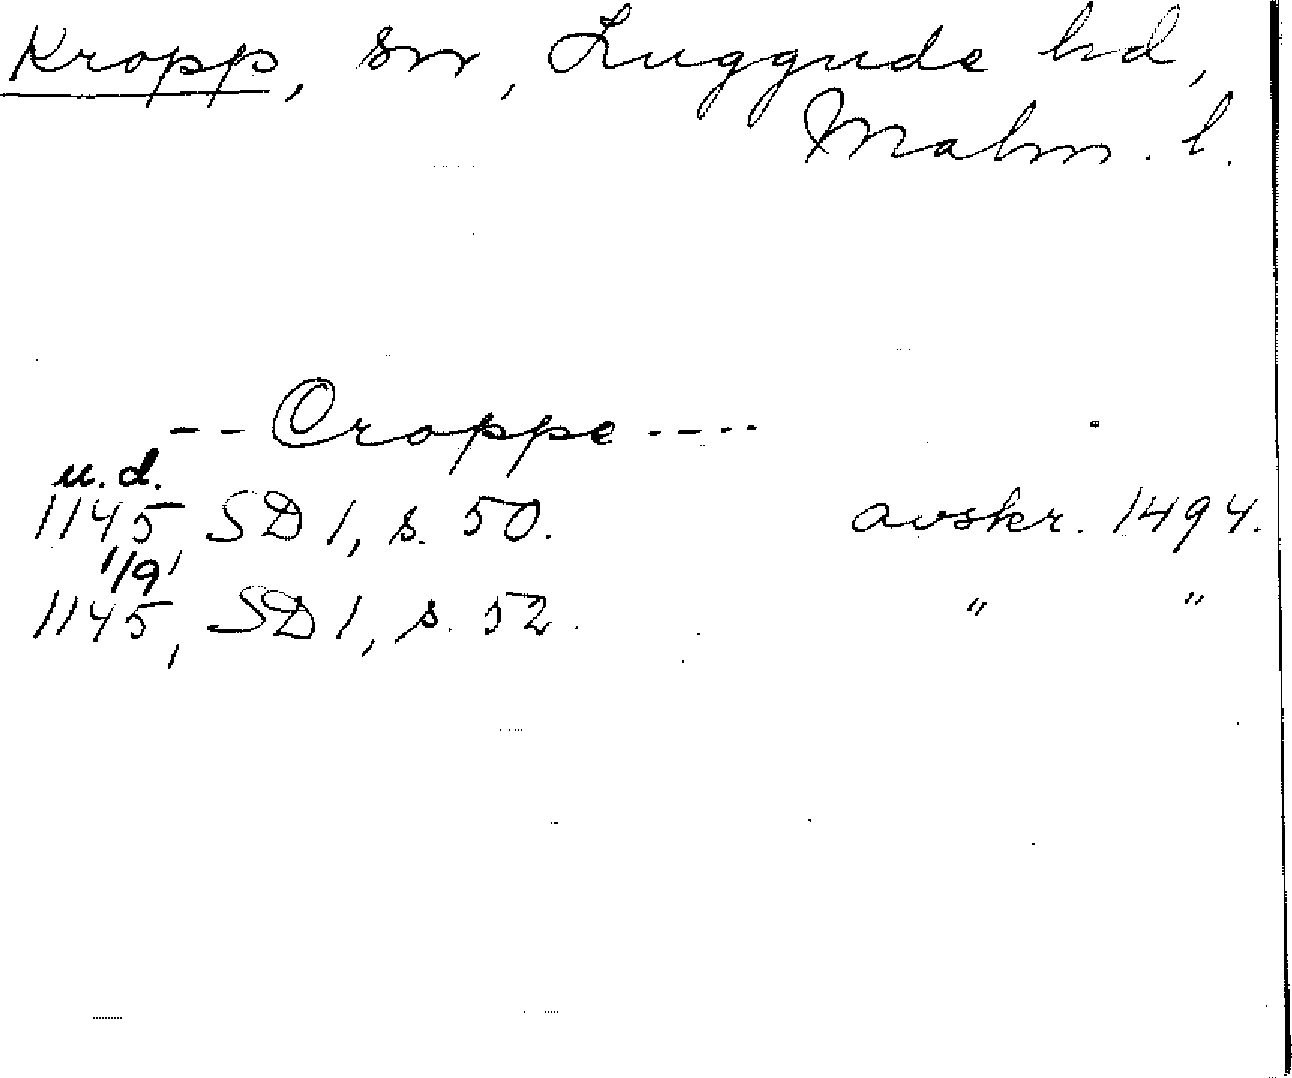 Kropp, sn, Luggude hd,
Malm. l.
-- Croppe ----
u. d.
1145 SD 1, s. 50. avskr. 1494.
1/9
1145, SD 1, s. 52. " "